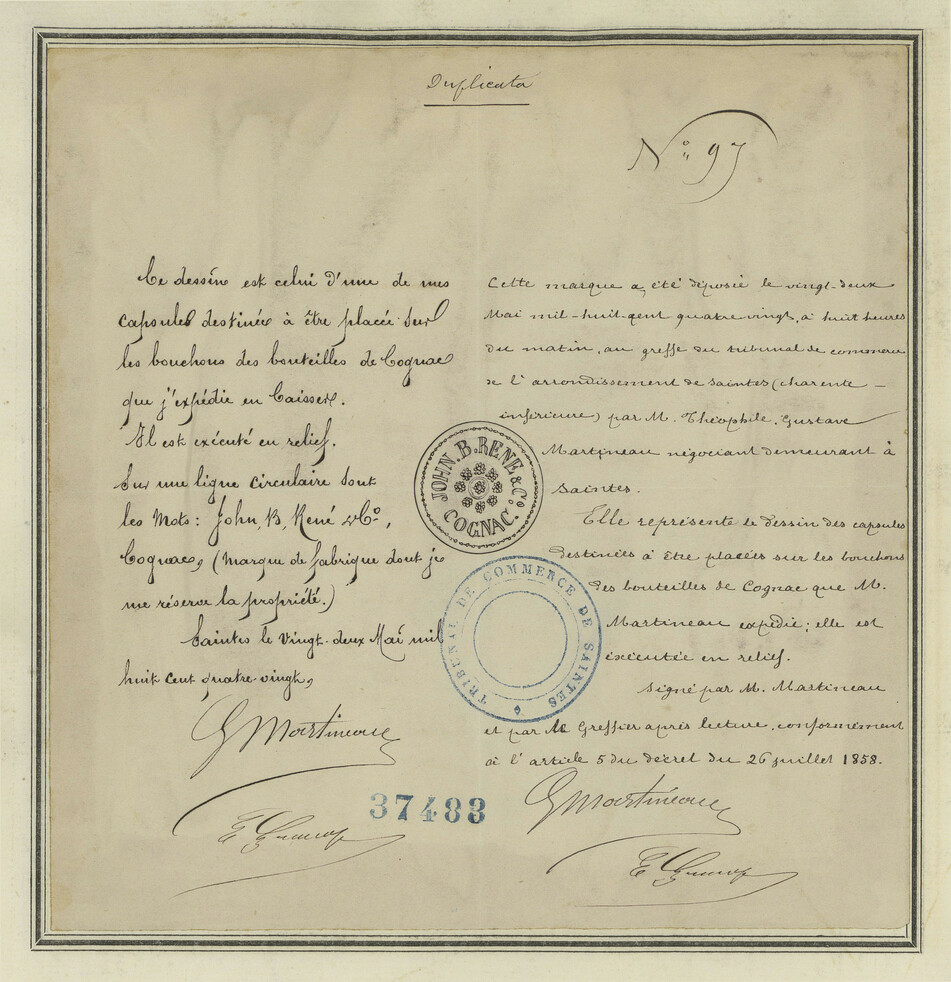 Duplicata
N° 97
Ce dessin est celui d'une de mes
capsules destinée à être placée sur
les bouchons des bouteilles de Cognac
que j'expédie en Caisses.
Il est exécuté en relief.
Sur une ligne circulaire sont
les Mots: John, B, René & Co,
Cognac, (Marque de fabrique dont je
me réserve la propriété.)
Saintes le Vingt-deux Mai mil
huit cent quatre-vingt,
G Martineau
37483
JOHN.B.RENE & Co
COGNAC.
TRIBUNAL DE COMMERCE DE SAINTES
Cette marque a été déposée le vingt-deux
Mai mil-huit-cent quatre vingt, à huit heures
du matin, au greffe du tribunal de commerce
de l'arrondissement de Saintes (charente-
inférieure) par M. Théophile, Gustave
Martineau négociant demeurant à
Saintes.
Elle représente le dessin des capsules
destinées à être placés sur les bouchons
des bouteilles de Cognac que M.
Martineau expédie; elle est
exécutée en relief.
Signé par M. Martineau
et par le Greffier après lecture, conformément
à l'article 5 du décret du 26 juillet 1858.
G Martineau